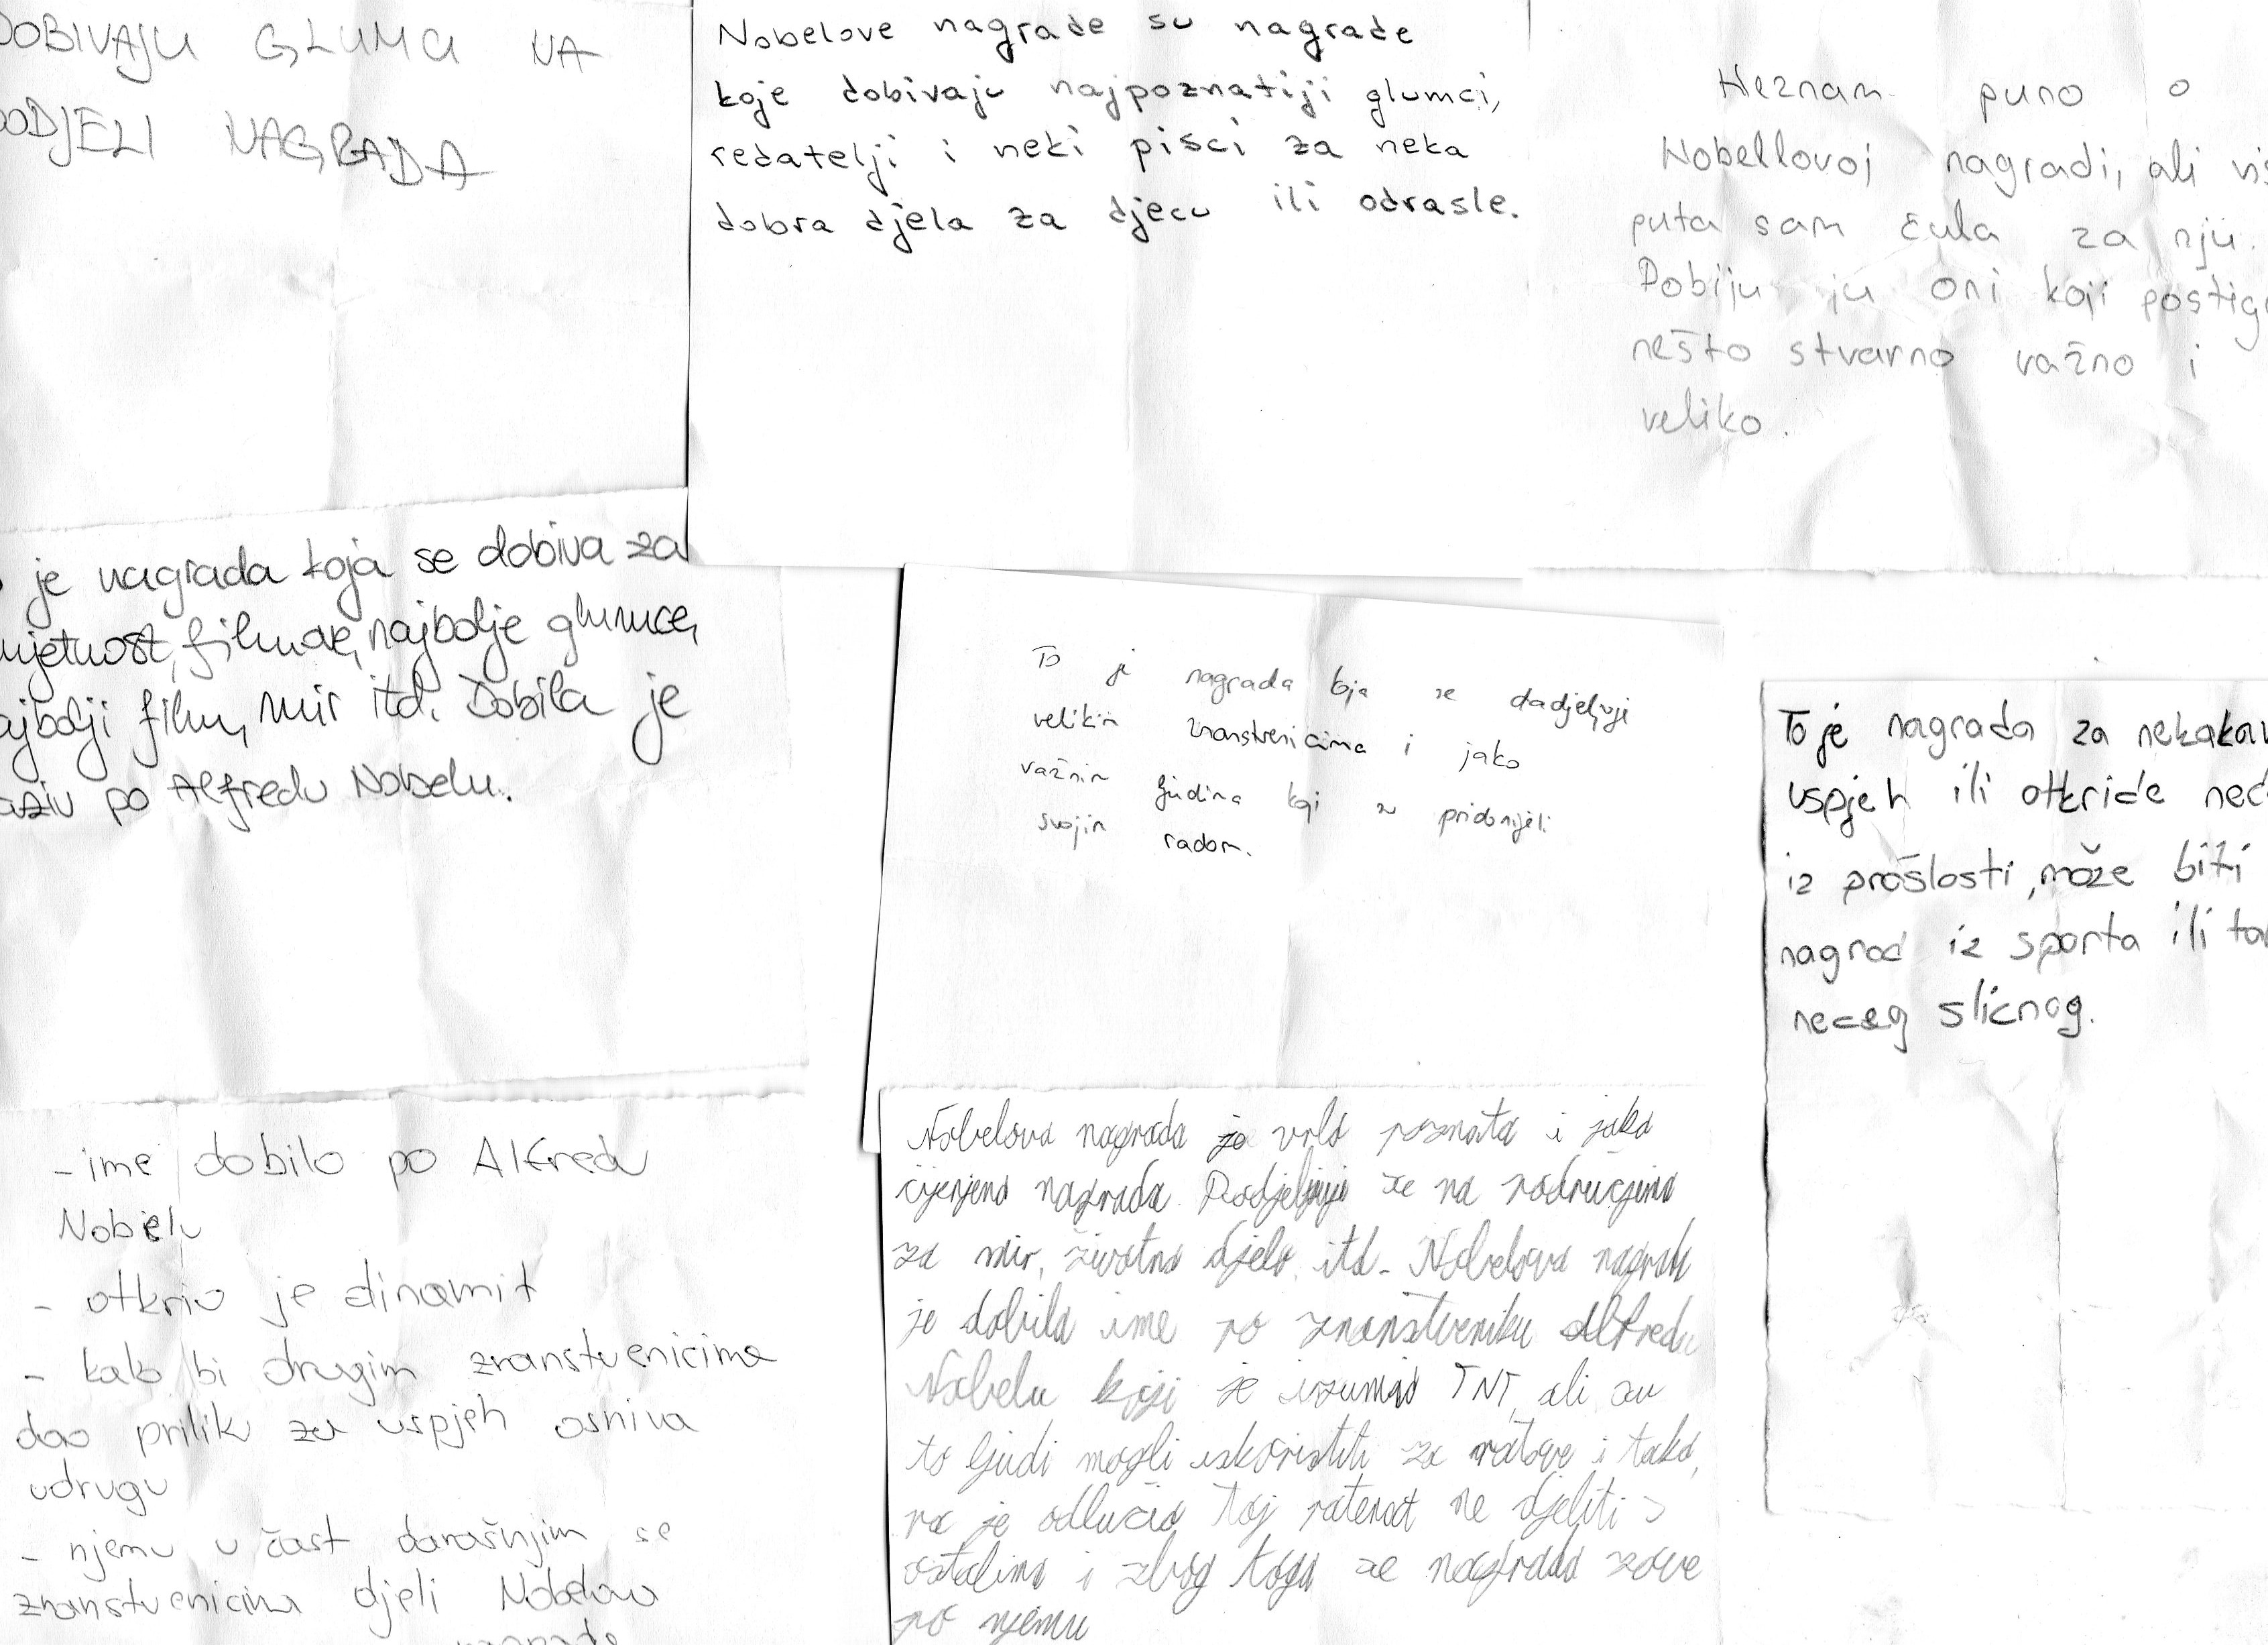 DOBIVAJU GLUMCI NA
DODJELI NAGRADA
Nobelove nagrade su nagrade
koje dobivaju najpoznatiji glumci,
redatelji i neki pisci za neka
dobra djela za djecu ili odrasle.
Neznam puno o
Nobellovoj nagradi, ali viš
puta sam čula za nju.
Dobiju ju oni koji postign
nešto stvarno važno i
veliko.
je nagrada koja se dobiva za
umjetnost, filmove, najbolje glumce,
najbolji film, mir itd. Dobila je
naziv po Alfredu Nobelu.
To je nagrada koja se dadjeljuje
velikim znanstvenicima i jako
važnim ljudima koji su pridonijeli
svojim radom.
To je nagrada za nekakav
uspjeh ili otkriće neč
iz prošlosti, može biti
nagrad iz sporta ili tak
neceg slicnog.
-ime dobilo po Alfredu
Nobelu
- otkrio je dinamit
- kako bi drugim znanstvenicima
dao prilik za uspjeh osniva
udrugu
- njemu u čast današnjim se
znanstvenicima djeli Nobelova
nagrada
Nobelova nagrada je vrlo poznata i jako
cijenjena nagrada. Dodjeljuje se na područjima
za mir, životno djelo, itd. Nobelova nagrada
je dobila ime po znanstveniku Alfredu
Nobelu koji je izumio TNT, ali su
to ljudi mogli iskoristiti za ratove i tako,
pa je odlučio taj patent ne djeliti s
ostalima i zbog toga se nagrada zove
po njemu